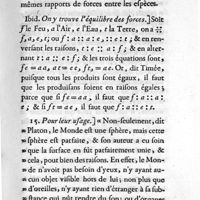 mêmes rapports de forces entre les espèces.
Ibid. On y trouve l'équilibre des forces.] Soit
f le Feu, a l'Air, e l'Eau, t la Terre, on a ::
f, a, e, t; f : a :: a : e :: e : t; & en ren-
versant les raisons, t : e :: a : f; & en alter-
nant & les trois équations sont,
fe = aa, at = ee, ft = ae. Or, dit Timée,
puisque tous les produits sont égaux, il faut
que tous les produisans soient égaux,
& que f = a = e = t.
15. Pour leur usage.] « Non-seulement, dit
» Platon, le Monde est une sphère, mais cette
» sphère est parfaite, & son auteur a eu soin
» que la surface en fût parfaitement unie, &
» cela, pour bien des raisons. En effet, le Mon-
» de n'avoit pas besoin d'yeux, n'y ayant au-
» cun objet visible hors de lui; non plus que
» d'oreilles, n'y ayant rien d'étranger à sa sub-
» stance qui pût rendre du son; ou d'organes